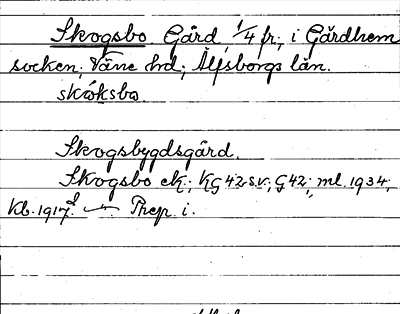 Skogsbo Gård 1/4 fr., i Gårdhem
socken, Väne hrd; Älfsborgs län.
skóksbo.
Skogsbygdsgård.
Skogsbo ek; KG 42 s.v., G 42; ml. 1934,
Kb. 1917 Prep. i.